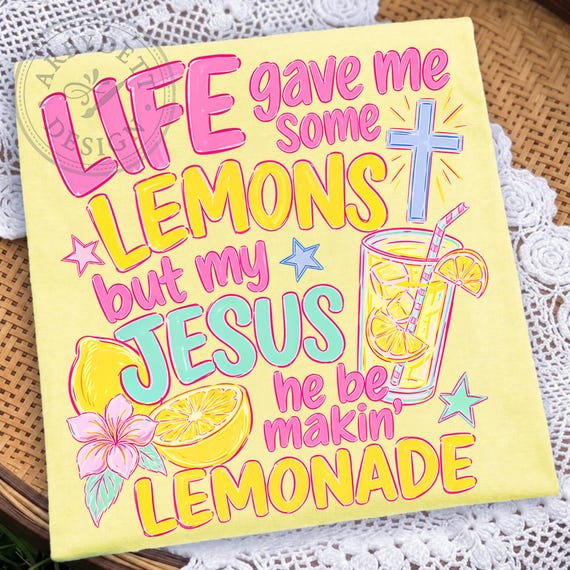 LIFE gave me
some
LEMONS
but my
JESUS
he be
makin'
LEMONADE
DESIGN